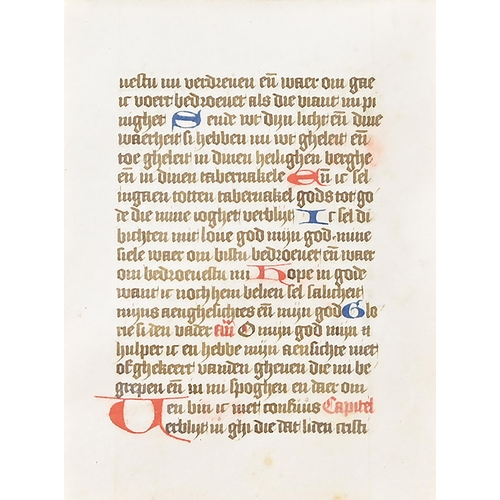 uestu mi verdreven en̄ waer om gae
ic voert bedroevet als die viant mi pi
nighet Sende wt dijn licht en̄ dine
waerheit si hebben mi wt gheleit en̄
toe gheleit in dinen heilighen berghe
en̄ in dinen tabernakele En̄ ic sel
ingaen totten tabernakel gods tot go
de die mine ioghet verblijt Ic sel di
biechten mit love god mijn god mine
siele waer om bistu bedroevet en̄ waer
om bedroevestu mi Hope in gode
want ic noch hem belien sel salicheit
mijns aensghesichtes en̄ mijn god Glo
rie si den vader O mijn god mijn
hulper ic en hebbe mijn aensichte niet
of ghekeert vanden ghenen die mi be
grepen en̄ in mi spoghen en daer om
en bin ic niet confuus Capitel
Verblijt in ghi die dat liden cristi